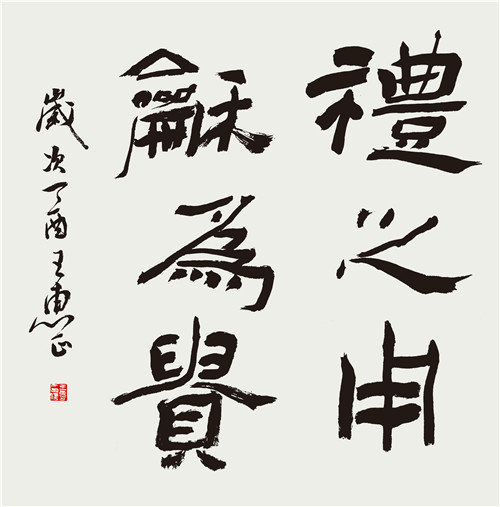 禮之用
龢為貴
歲次丁酉王惠正